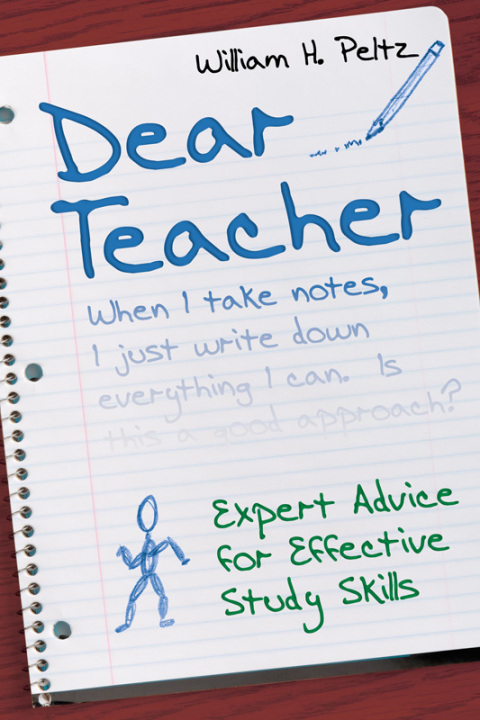 William H. Peltz
Dear
Teacher
When I take notes,
I just write down
everything I can. Is
this a good approach?
Expert Advice
for Effective
Study Skills